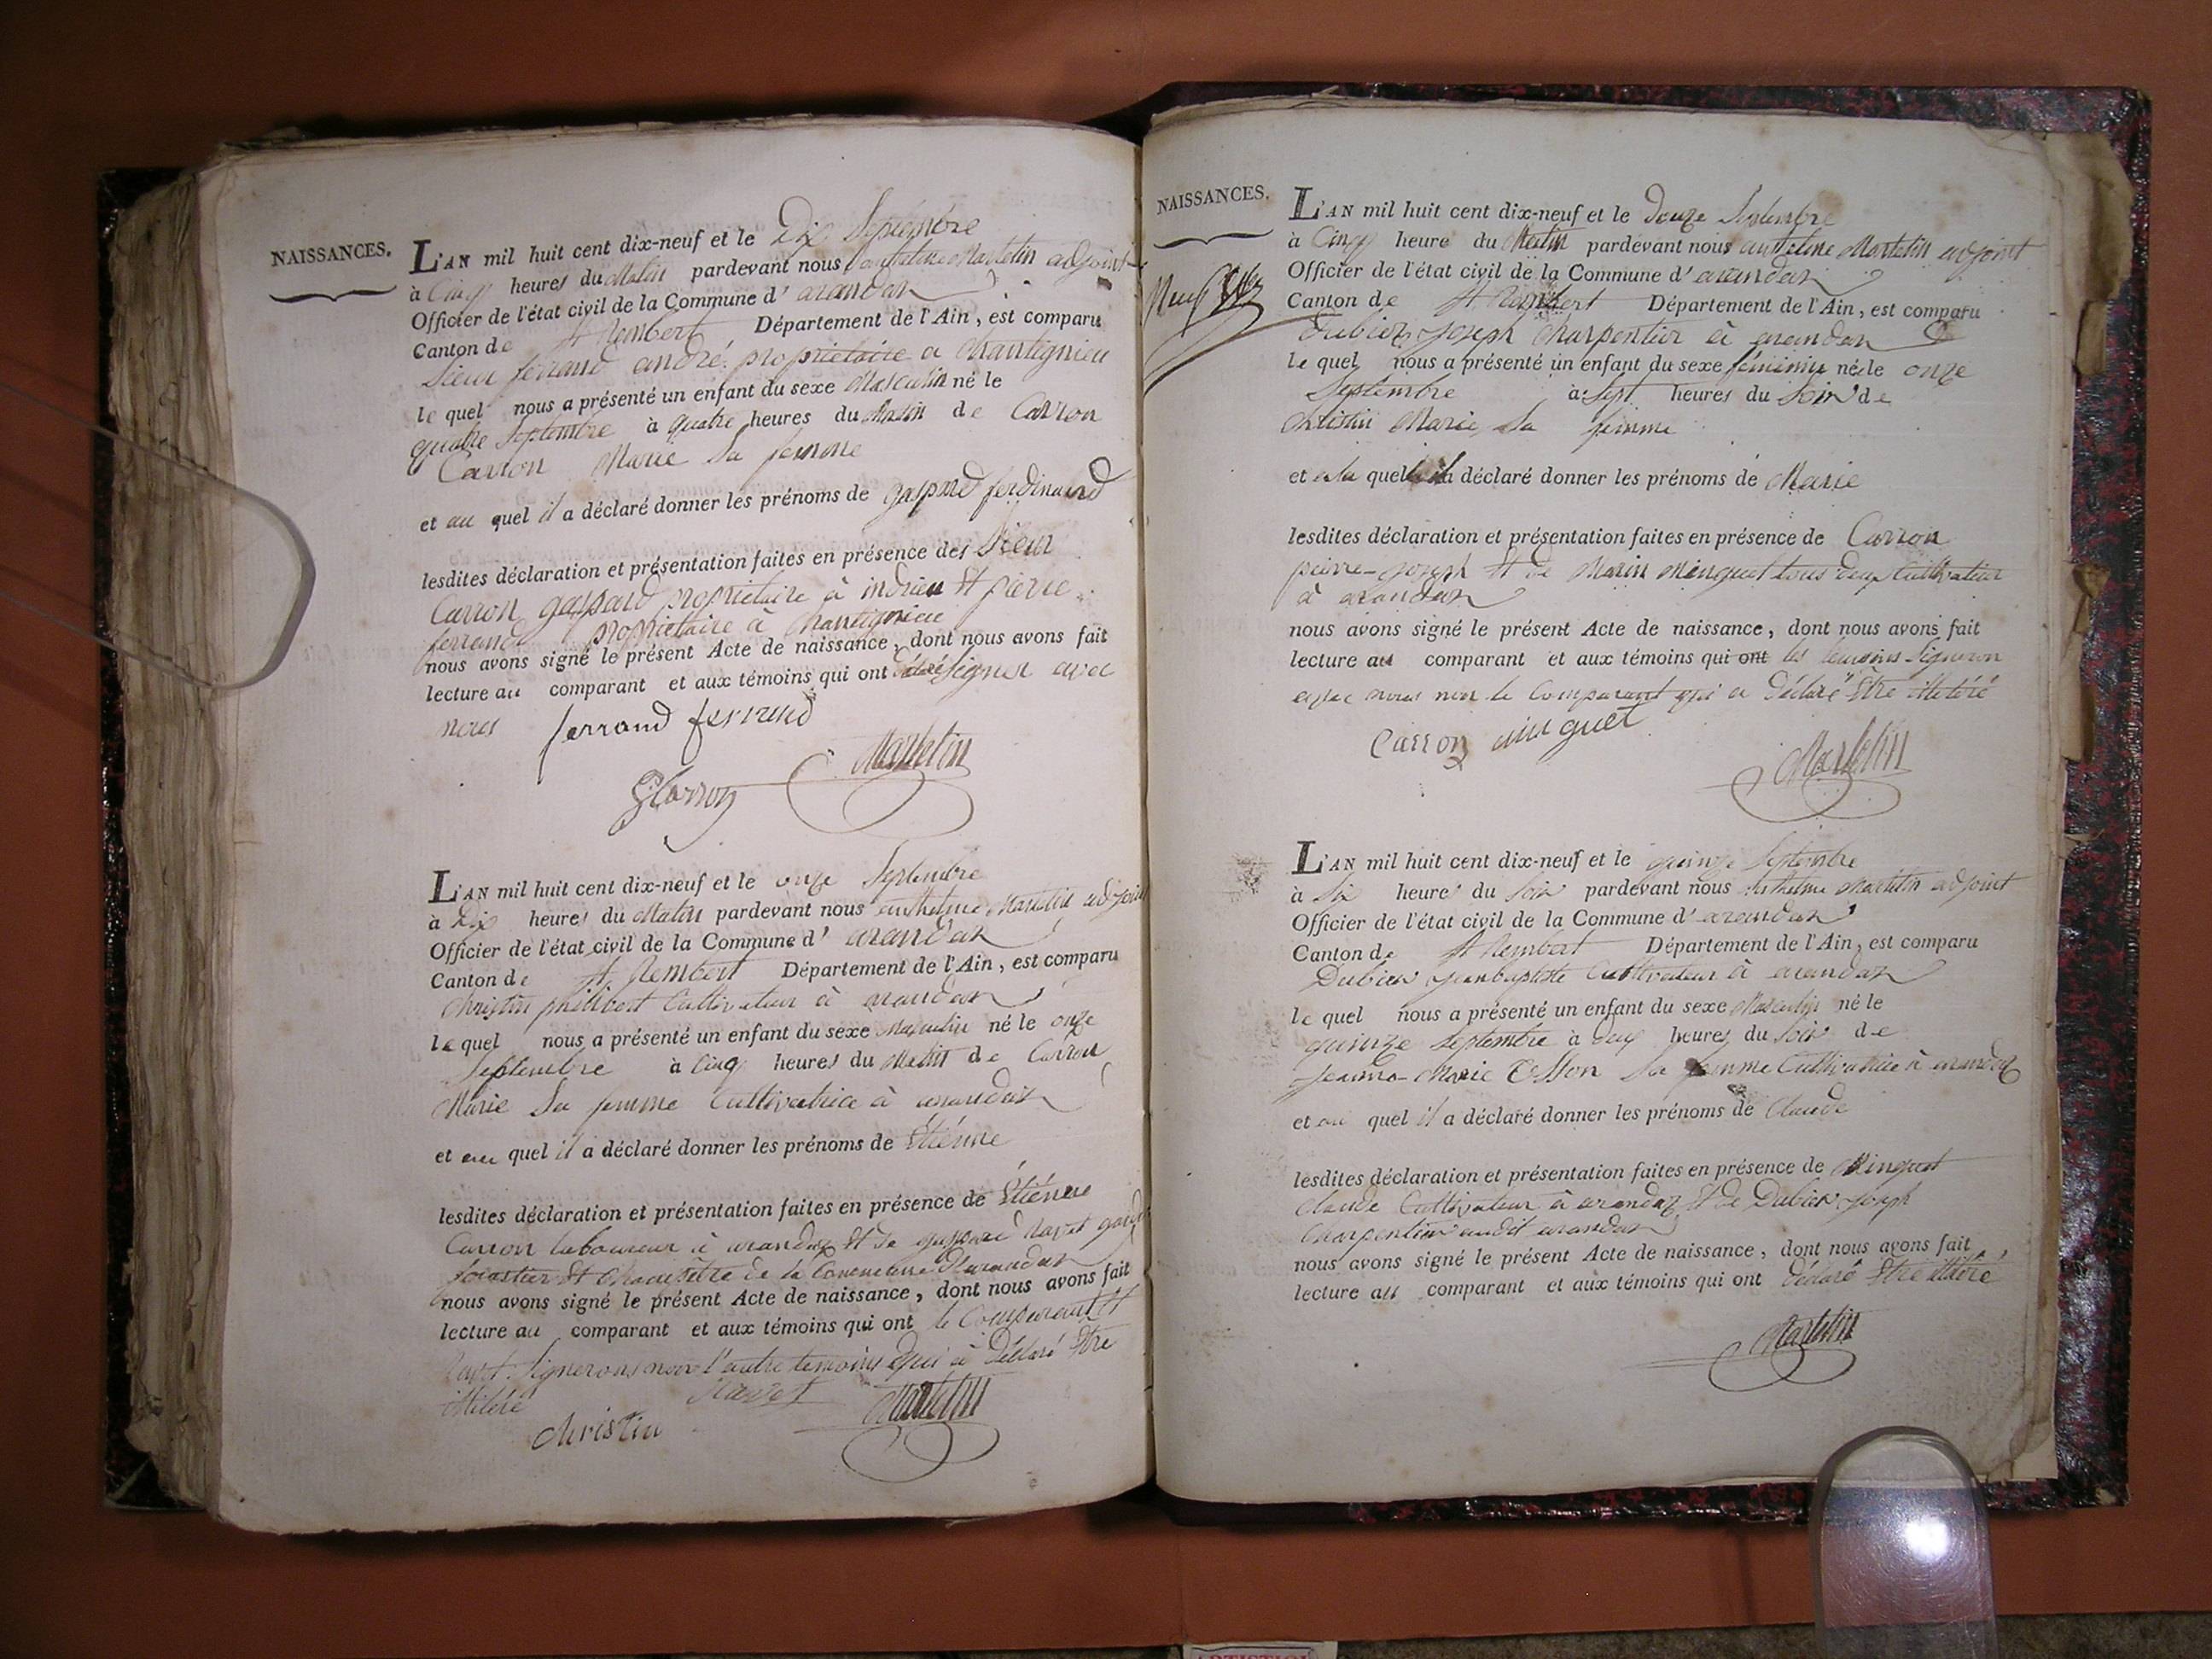 NAISSANCES.
L'AN mil huit cent dix-neuf et le Dix Septembre
à Cinq heures du Matin pardevant nous anthelme Martelin adjoint
Officier de l'état civil de la Commune d' arandas
Canton de St Rembert Département de l'Ain, est comparu
Sieur ferrand andré propriétaire a Chantignieu
le quel nous a présenté un enfant du sexe Masculin né le
quatre Septembre à quatre heures du Matin de Carron
Carron Marie Sa femme
et au quel il a déclaré donner les prénoms de gaspard ferdinand
lesdites déclaration et présentation faites en présence des Sieur
Carron gaspard propriétaire à indrieu Et pierre
ferrand propriétaire à Chantignieu
nous avons signé le présent Acte de naissance, dont nous avons fait
lecture au comparant et aux témoins qui ont signer avec
nous ferrand ferrand
Martelin
G Carron
L'AN mil huit cent dix-neuf et le onze Septembre
à Dix heures du Matin pardevant nous anthelme Martelin adjoint
Officier de l'état civil de la Commune d' arandas
Canton de St Rembert Département de l'Ain, est comparu
Christin philibert Cultivateur à arandas
le quel nous a présenté un enfant du sexe Masculin né le onze
Septembre à Cinq heures du Matin de Carron
Marie Sa femme Cultivatrice à arandas
et au quel il a déclaré donner les prénoms de Etiénne
lesdites déclaration et présentation faites en présence de Etiénne
Carron laboureur à arandas Et de gaspard Navet garde
forestier Et Champetre de la Commune D'arandas
nous avons signé le présent Acte de naissance, dont nous avons fait
lecture au comparant et aux témoins qui ont le Comparant Et
Navet Signerons non l'autre temoins qui a Déclaré Etre
illitéré Navet Martelin
Christin
NAISSANCES.
L'AN mil huit cent dix-neuf et le Douze Septembre
à Cinq heure du Matin pardevant nous anthelme Martelin adjoint
Officier de l'état civil de la Commune d' arandas
Canton de St Rambert Département de l'Ain, est comparu
Dubien Joseph Charpentier à arandas
le quel nous a présenté un enfant du sexe féminin né le onze
Septembre à Sept heures du Soir de
Christin Marie Sa femme
et a la quelle il a déclaré donner les prénoms de Marie
lesdites déclaration et présentation faites en présence de Carron
pierre-Joseph Et de Marin Minguet tous deux Cultivateur
à arandas
nous avons signé le présent Acte de naissance, dont nous avons fait
lecture au comparant et aux témoins qui ont les temoins Signeron
avec nous non le Comparant qui a Déclaré Etre illitéré
Carron minguet
Martelin
L'AN mil huit cent dix-neuf et le quinze Septembre
à Six heures du Soir pardevant nous anthelme Martelin adjoint
Officier de l'état civil de la Commune d' arandas
Canton de St Rembert Département de l'Ain, est comparu
Dubien Jean baptiste Cultivateur à arandas
le quel nous a présenté un enfant du sexe Masculin né le
quinze Septembre à deux heures du Soir de
Jeanne-Marie Tisson Sa femme Cultivatrice à arandas
et au quel il a déclaré donner les prénoms de Claude
lesdites déclaration et présentation faites en présence de Minguet
Claude Cultivateur à arandas Et de Dubien Joseph
Charpentier audit arandas
nous avons signé le présent Acte de naissance, dont nous avons fait
lecture au comparant et aux témoins qui ont Déclaré Etre illitéré
Martelin